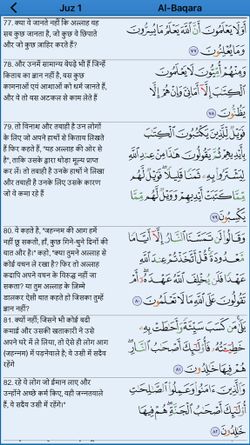 Juz 1
Al-Baqara
77. क्या वे जानते नहीं कि अल्लाह वह
सब कुछ जानता है, जो कुछ वे छिपाते
और जो कुछ ज़ाहिर करते हैं?
أَوَلَا يَعْلَمُونَ أَنَّ ٱللَّهَ يَعْلَمُ مَا يُسِرُّونَ
وَمَا يُعْلِنُونَ ٧٧
78. और उनमें सामान्य बेपढ़े भी हैं जिन्हें
किताब का ज्ञान नहीं है, बस कुछ
कामनाओं एवं आशाओं को धर्म जानते हैं,
और वे तो बस अटकल से काम लेते हैं
وَمِنْهُمْ أُمِّيُّونَ لَا يَعْلَمُونَ
ٱلْكِتَٰبَ إِلَّآ أَمَانِيَّ وَإِنْ هُمْ إِلَّا
يَظُنُّونَ ٧٨
79. तो विनाश और तबाही है उन लोगों
के लिए जो अपने हाथों से किताब लिखते
हैं फिर कहते हैं, "यह अल्लाह की ओर से
है", ताकि उसके द्वारा थोड़ा मूल्य प्राप्त
कर लें। तो तबाही है उनके हाथों ने लिखा
और तबाही है उनके लिए उसके कारण
जो वे कमा रहे हैं
فَوَيْلٌ لِّلَّذِينَ يَكْتُبُونَ ٱلْكِتَٰبَ
بِأَيْدِيهِمْ ثُمَّ يَقُولُونَ هَٰذَا مِنْ عِندِ ٱللَّهِ
لِيَشْتَرُوا۟ بِهِۦ ثَمَنًا قَلِيلًا فَوَيْلٌ لَّهُم
مِّمَّا كَتَبَتْ أَيْدِيهِمْ وَوَيْلٌ لَّهُم مِّمَّا
يَكْسِبُونَ ٧٩
80. वे कहते है, "जहन्नम की आग हमें
नहीं छू सकती, हाँ, कुछ गिने-चुने दिनों की
बात और है।" कहो, "क्या तुमने अल्लाह से
कोई वचन ले रखा है? फिर तो अल्लाह
कदापि अपने वचन के विरुद्ध नहीं जा
सकता? या तुम अल्लाह के जिम्मे
डालकर ऐसी बात कहते हो जिसका तुम्हें
ज्ञान नहीं?
وَقَالُوا۟ لَن تَمَسَّنَا ٱلنَّارُ إِلَّآ أَيَّامًا
مَّعْدُودَةً قُلْ أَتَّخَذْتُمْ عِندَ ٱللَّهِ
عَهْدًا فَلَن يُخْلِفَ ٱللَّهُ عَهْدَهُۥٓ أَمْ
تَقُولُونَ عَلَى ٱللَّهِ مَا لَا تَعْلَمُونَ ٨٠
81. क्यों नहीं; जिसने भी कोई बदी
कमाई और उसकी खताकारी ने उसे
अपने घरे में ले लिया, तो ऐसे ही लोग आग
(जहन्नम) में पड़नेवाले है; वे उसी में सदैव
रहेंगे
بَلَىٰ مَن كَسَبَ سَيِّئَةً وَأَحَٰطَتْ بِهِۦ
خَطِيٓـَٔتُهُۥ فَأُو۟لَٰٓئِكَ أَصْحَٰبُ
ٱلنَّارِ هُمْ فِيهَا خَٰلِدُونَ ٨١
82. रहे वे लोग जो ईमान लाए और
उन्होंने अच्छे कर्म किए, वही जन्नतवाले
हैं, वे सदैव उसी में रहेंगे।"
وَٱلَّذِينَ ءَامَنُوا۟ وَعَمِلُوا۟ ٱلصَّٰلِحَٰتِ
أُو۟لَٰٓئِكَ أَصْحَٰبُ ٱلْجَنَّةِ هُمْ فِيهَا
خَٰلِدُونَ ٨٢